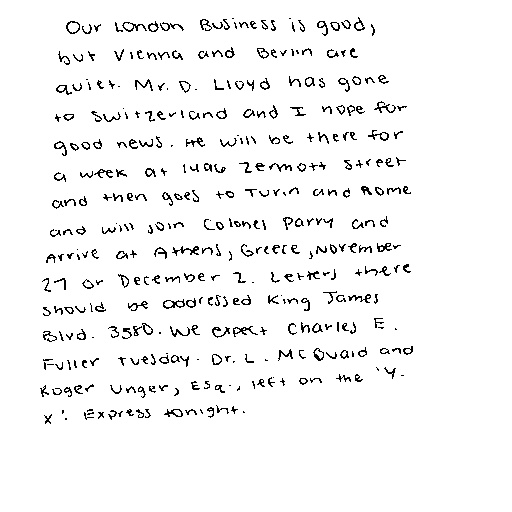 Our London Business is good,
but Vienna and Berlin are
quiet. Mr. D. Lloyd has gone
to Switzerland and I hope for
good news. He will be there for
a week at 1496 Zermott street
and then goes to Turin and Rome
and will join Colonel Parry and
Arrive at Athens, Greece, November
27 or December 2. Letters there
should be addressed King James
Blvd. 3580. We expect Charles E.
Fuller Tuesday. Dr. L. McQuaid and
Roger Unger, Esq., left on the 'Y.
X'. Express tonight.